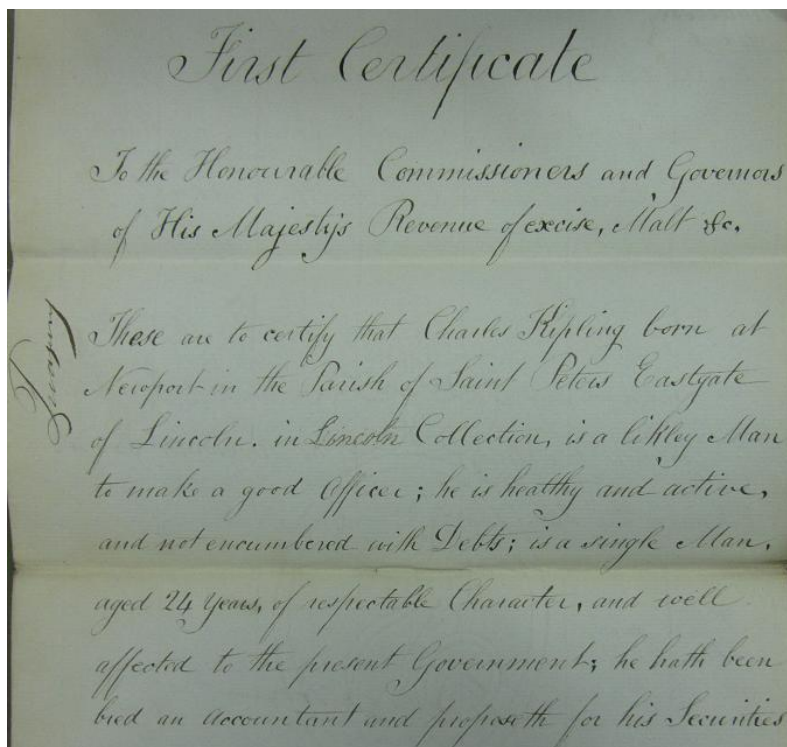 First Certificate
To the Honourable Commissioners and Governors
of His Majesty's Revenue of excise, Malt &c.
These are to certify that Charles Kipling born at
Newport in the Parish of Saint Peters Eastgate
of Lincoln. in Lincoln Collection, is a likley Man
to make a good Officer; he is healthy and active,
and not encumbered with Debts; is a single Man,
aged 24 Years, of respectable Character, and well
affected to the present Government; he hath been
bred an Accountant and proposeth for his Securities